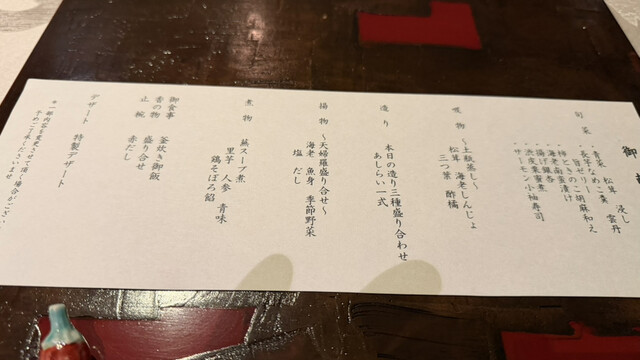 御
旬 菜
・青菜 松茸 浸し
・旨なめこ羹 雲丹
・旨ゼリー胡麻和え
・柿ときのこ
・海老南蛮漬け
・揚げ銀杏
・渋皮栗蜜煮
・サーモン小袖寿司
吸 物
～土瓶蒸し～
松茸 海老しんじょ
三つ葉 酢橘
造 り
本日の造り三種盛り合わせ
あしらい一式
揚 物
～天婦羅盛り合せ～
海老 魚身 季節野菜
塩 だし
煮 物
蕪スープ煮
里芋 人参 青味
鶏そぼろ餡
御食事
釜炊き御飯
香の物 盛り合せ
止 椀 赤だし
デザート 特製デザート
＊一部内容を変更させて頂く場合がござい
予めご了承くださいませ